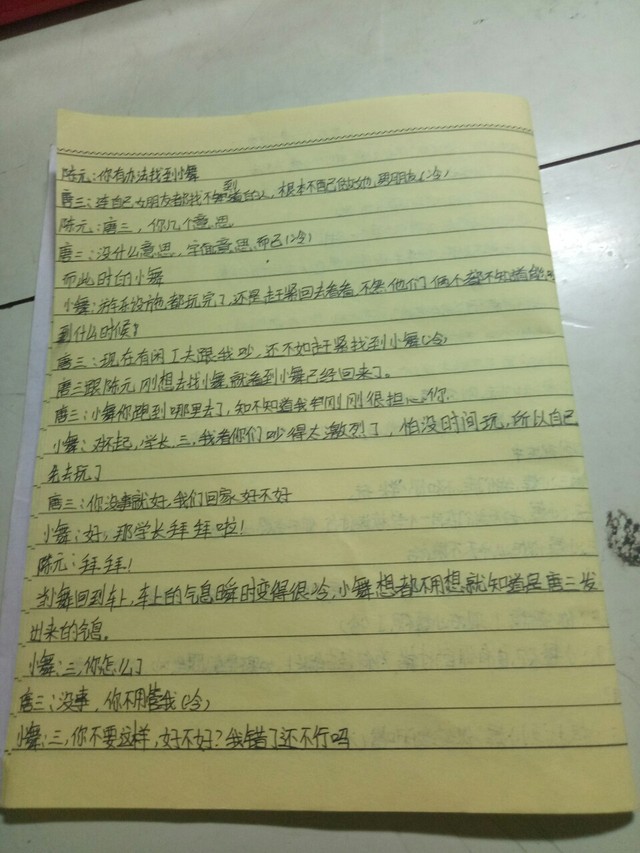 陈元：你有办法找到小舞
唐三：连自己女朋友都找不到的人，根本不配做她男朋友（冷）
陈元：唐三，你几个意思
唐三：没什么意思，字面意思而已（冷）
而此时的小舞
小舞：游乐设施都玩完了，还是赶紧回去看看，不然他们俩个都不知道
到什么时候？
唐三：现在有闲工夫跟我吵，还不如赶紧找到小舞（冷）
唐三跟陈元刚想去找小舞就看到小舞已经回来了。
唐三：小舞你跑到哪里去了，知不知道我刚刚很担心你
小舞：对不起，学长，三，我看你们吵得太激烈了，怕没时间玩，所以自己
先去玩了
唐三：你没事就好，我们回家好不好
小舞：好，那学长拜拜啦！
陈元：拜拜！
当小舞回到车上，车上的气息瞬时变得很冷，小舞想都不用想就知道是唐三发
出来的气息。
小舞：三，你怎么了
唐三：没事，你不用管我（冷）
小舞：三，你不要这样，好不好？我错了还不行吗